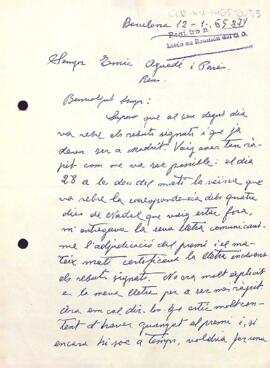 Barcelona 12-1-65
Senyor Enric Aguadé i Parés
Reus.
Benvolgut senyor:
Suposo que al seu degut dia
va rebre els rebuts signats i que ja
deuen ser a
ràpit com me va ser possible: el dia
28 a les deu del matí la veïna que
va rebre la correspondència dels quatre
dies de Nadal que vaig estar fora,
m'entregava la seva lletra comunicant-
me l'adjudicació del premi i el ma-
teix matí certificava la lletra incloent
els rebuts signats. No era molt explícit
a la meva lletra per a ser més ràpit
ara em cal dir-los que estic molt con-
tent d'haver guanyat el premi i, si
encara hi soc a temps, voldria fer una